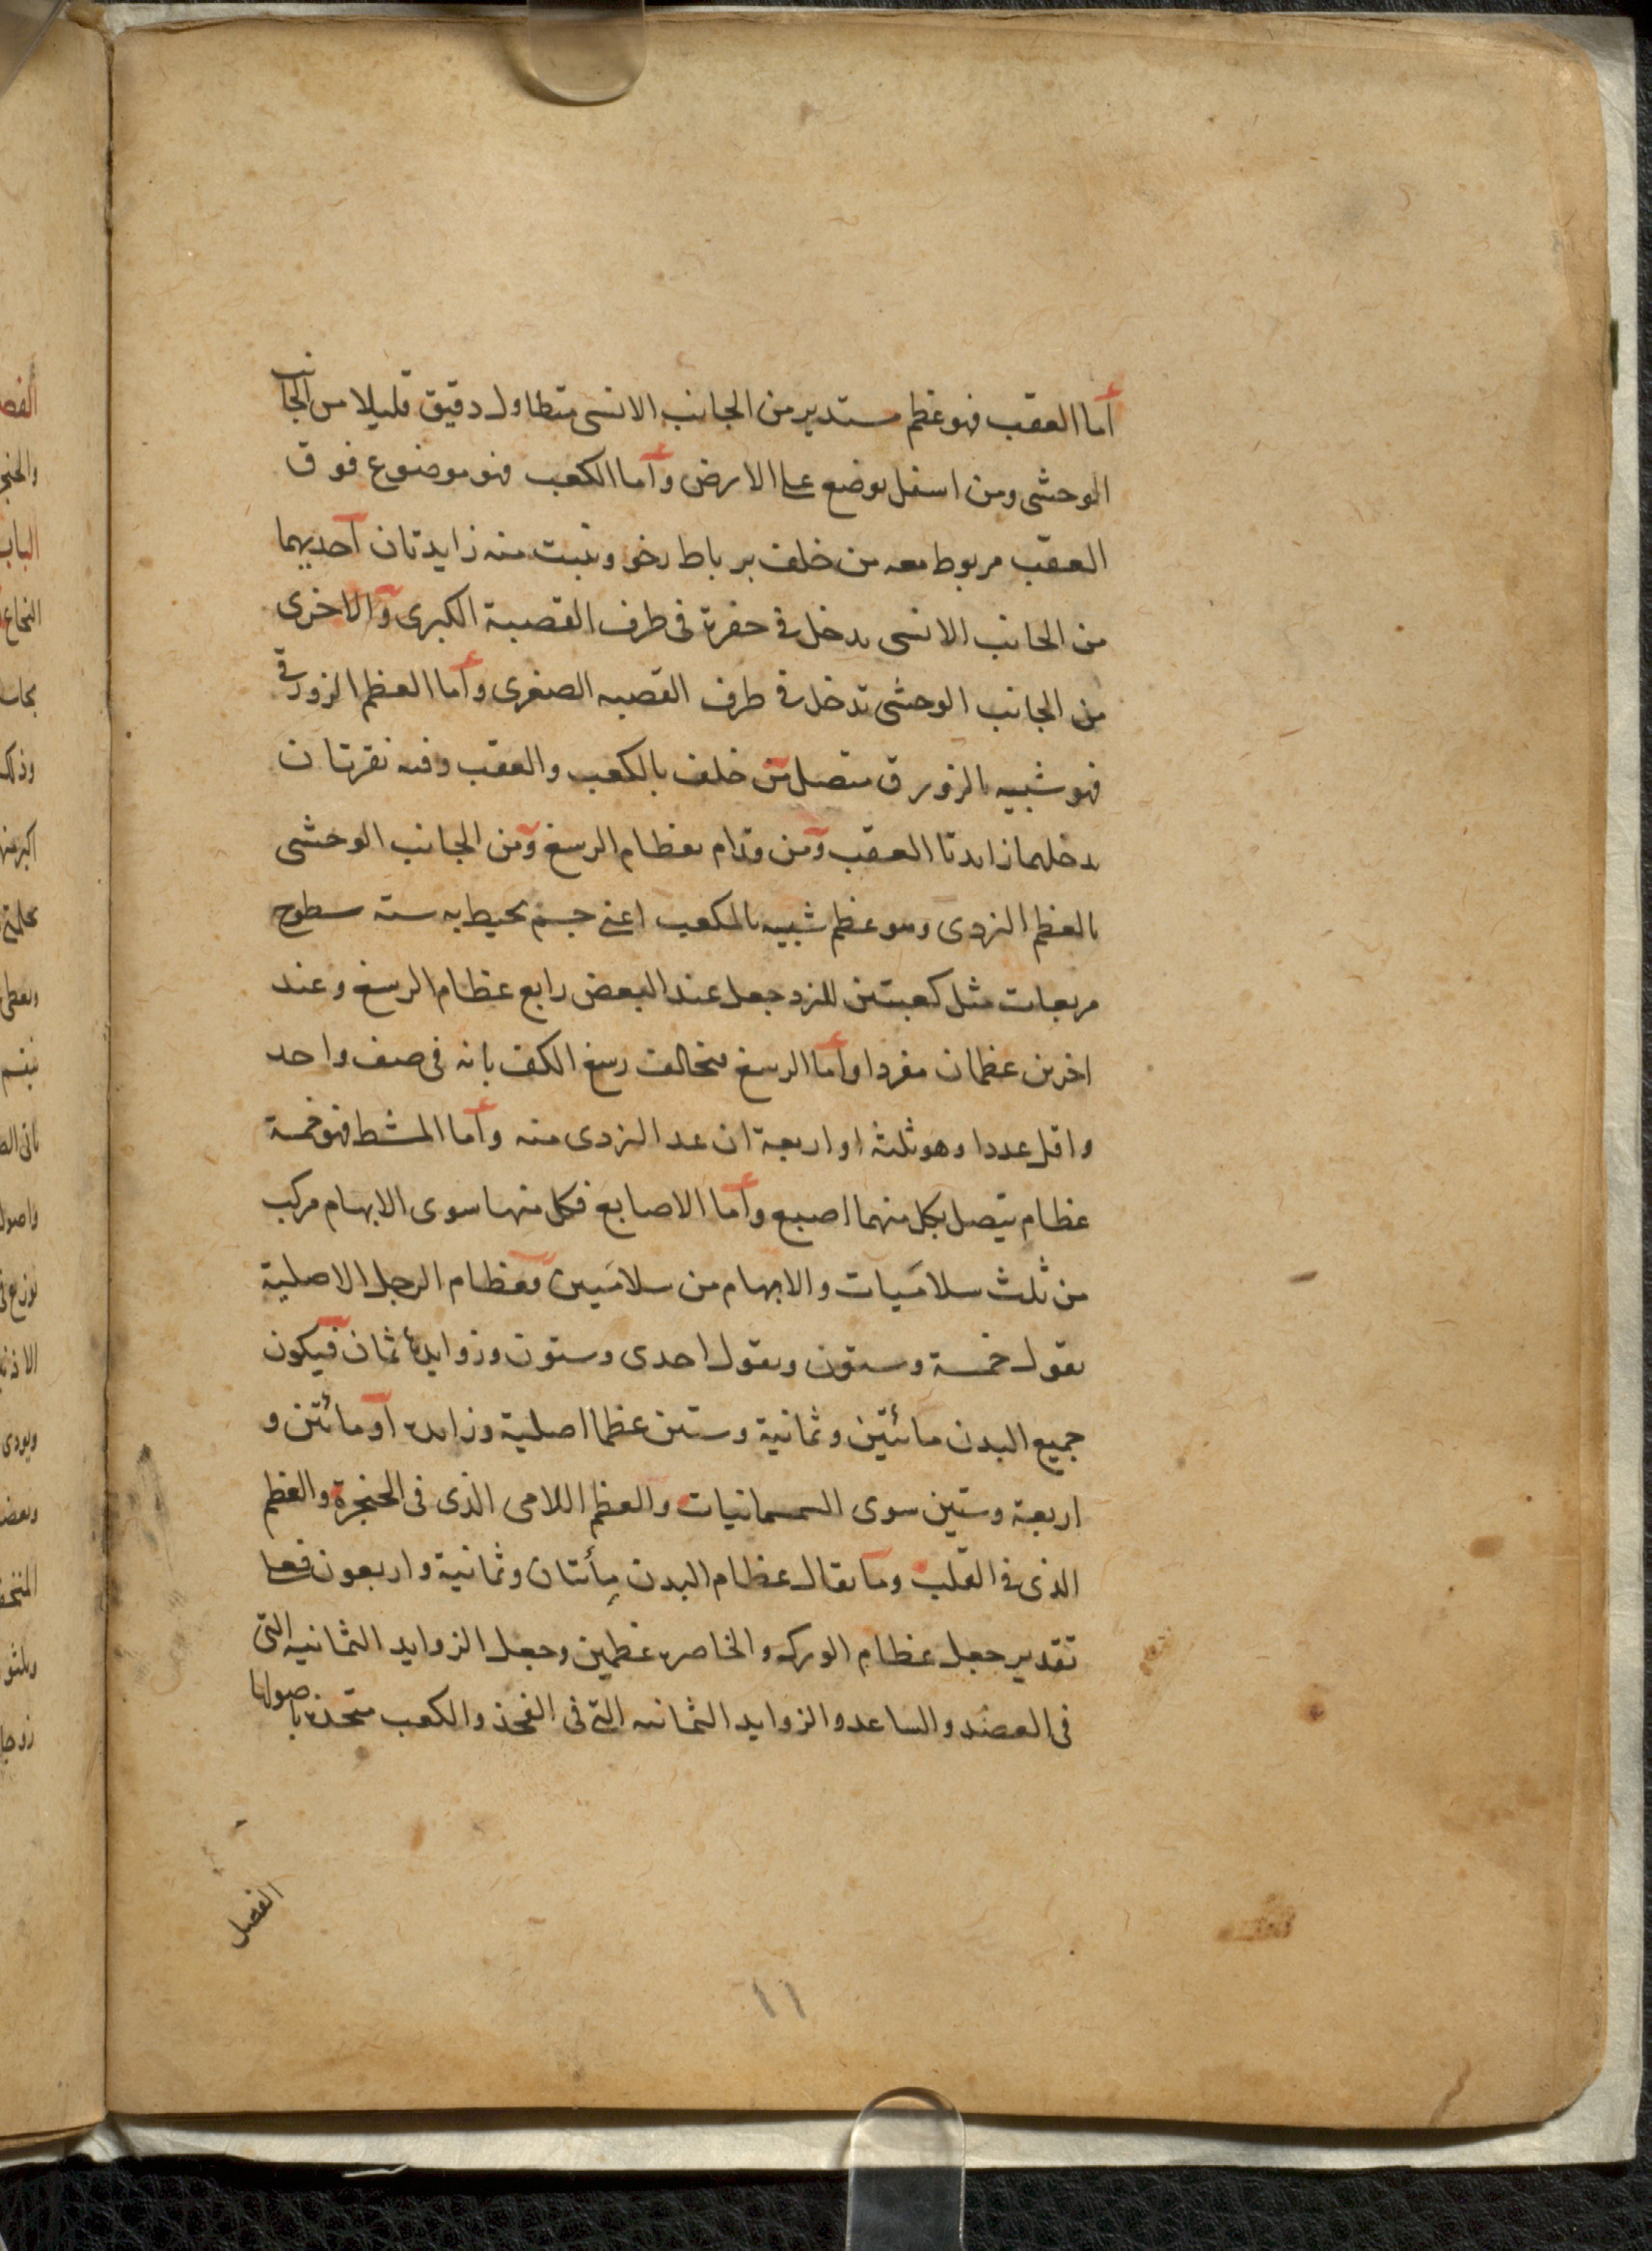 أما العقب فهو عظم مستدير من الجانب الانسى متطاول دقيق قليلا من الجانب
الوحشى ومن اسفل يوضع على الارض وأما الكعب فهو موضوع فوق
العقب مربوط معه من خلف برباط رخو وتنبت منه زايدتان احديهما
من الجانب الانسى يدخل فى حفرة فى طرف القصبة الكبرى والاخرى
من الجانب الوحشى تدخل فى طرف القصبه الصغرى وأما العظم الزورقى
فهو شبيه بالزورق متصل من خلف بالكعب والعقب وفيه نقرتان
يدخلهما زايدتا العقب ومن قدام بعظام الرسغ ومن الجانب الوحشى
بالعظم النردى وهو عظم شبيه بالمكعب اعنى جسم يحيط به ستة سطوح
مربعات مثل كعبتين للنرد جعل عند البعض رابع عظام الرسغ وعند
اخرين عظمان مفردا وأما الرسغ فيخالف رسغ الكف بانه فى صف واحد
واقل عددا وهو ثلثه او اربعة ان عد النردى منه وأما المشط فهو خمسة
عظام يتصل بكل منهما اصبع وأما الاصابع فكل منها سوى الابهام مركب
من ثلث سلاميات والابهام من سلاميين فعظام الرجل الاصلية
بقول خمسة وستون وبقول احدى وستون وزوايدها ثمان فيكون
جميع البدن مائتين وثمانية وستين عظما اصلية وزايده او مائتين و
اربعة وستين سوى السمسمانيات والعظم اللامى الذى فى الحنجرة والعظم
الذى فى القلب وما يقال عظام البدن مأتان وثمانية واربعون فعلى
تقدير جعل عظام الورك والخاصره عظمين وجعل الزوايد الثمانيه التى
فى العضد والساعد والزوايد الثمانيه التى فى الفخذ والكعب متحده باصولها
الفصل
١١